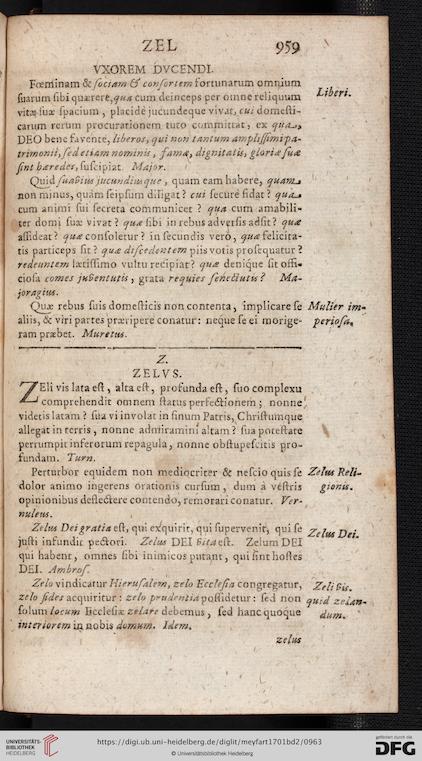 ZEL 959
VXOREM DVCENDI.
Fœminam & sociam & consortem fortunarum omnium
suarum sibi quærere, qua cum deinceps per omne reliquum
vitæ suæ spacium, placidè jucundeque vivat, cui domesti-
carum rerum procurationem tuto committat, ex qua,
DEO bene favente, liberos, qui non tantum amplissimi pa-
trimonii, sed etiam nominis, famæ, dignitatis, gloriæ suæ
sint hæredes, suscipiat. Major.
Liberi.
Quid suavius jucundiusque, quam eam habere, quam
non minus, quàm seipsum diligat? cui securè fidat? qua
cum animi sui secreta communicet? qua cum amabili-
ter domi suæ vivat? quæ sibi in rebus adversis adsit? quæ
assideat? quæ consoletur? in secundis verò, quæ felicita-
tis particeps sit? quæ discedentem piis votis prosequatur?
redeuntem lætissimo vultu recipiat? quæ denique sit offi-
ciosa comes juventutis, grata requies senectutis? Ma-
joragius.
Quæ rebus suis domesticis non contenta, implicare se
aliis, & viri partes præripere conatur: neque se ei morige-
ram præbet. Muretus.
Mulier im-
periosa.
Z.
ZELVS.
ZEli vis lata est, alta est, profunda est, suo complexu
comprehendit omnem status perfectionem; nonne
videtis latam? sua vi involat in sinum Patris, Christumque
allegat in terris, nonne admiramini altam? sua potestate
perrumpit inferorum repagula, nonne obstupescitis pro-
fundam. Turn.
Perturbor equidem non mediocriter & nescio quis se
dolor animo ingerens orationis cursum, dum à vestris
opinionibus deflectere contendo, remorari conatur. Ver-
nuleus.
Zelus Reli-
gionis.
Zelus Dei gratia est, qui exquirit, qui supervenit, qui se
justi infundit pectori. Zelus DEI vita est. Zelum DEI
qui habent, omnes sibi inimicos putant, qui sint hostes
DEI. Ambros.
Zelus Dei.
Zelo vindicatur Hierusalem, zelo Ecclesia congregatur,
zelo fides acquiritur: zelo prudentia possidetur: sed non
solum locum Ecclesiæ zelare debemus, sed hanc quoque
interiorem in nobis domum. Idem.
Zeli vis.
quid zelan-
dum.
zelus
UNIVERSITÄTS-
BIBLIOTHEK
HEIDELBERG
https://digi.ub.uni-heidelberg.de/diglit/meyfart1701bd2/0963
© Universitätsbibliothek Heidelberg
gefördert durch die
DFG